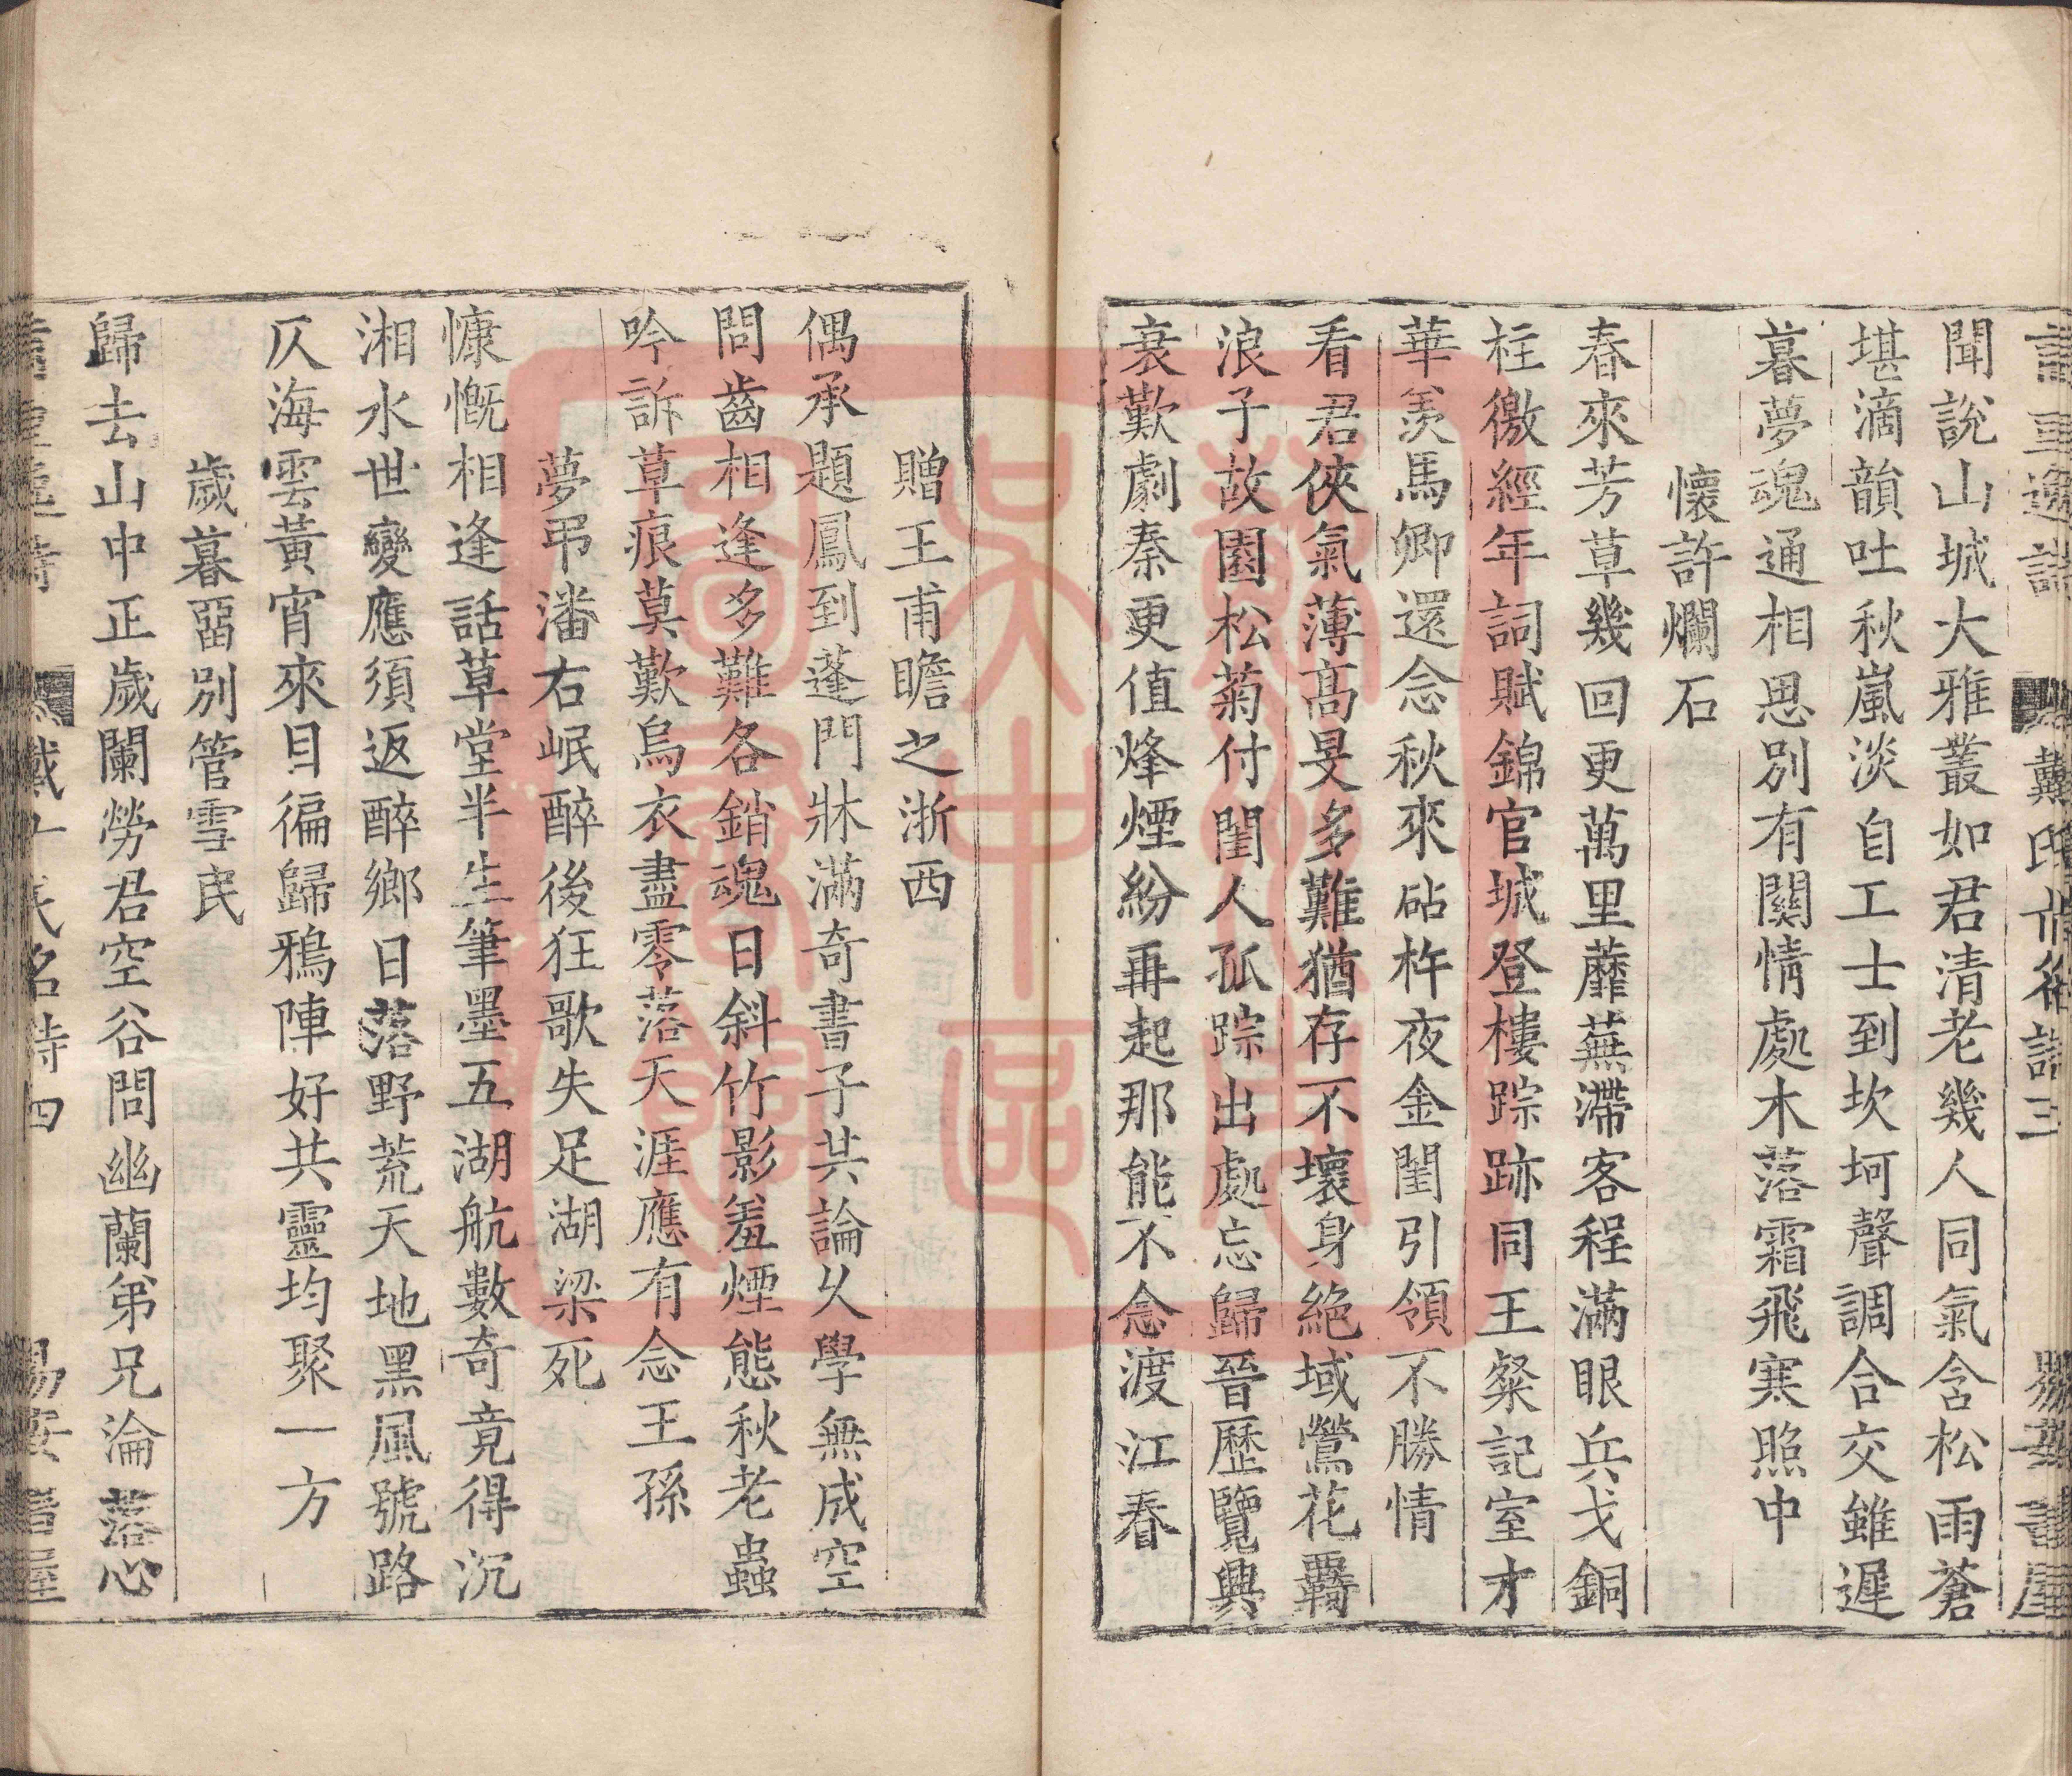 聞說山城大雅叢如君清老幾人同氣含松雨蒼
堪滴韻吐秋嵐淡自工士到坎坷聲調合交雖遲
暮夢魂通相思別有關情處木落霜飛寒照中
懷許爛石
春來芳草幾回更萬里蘼蕪滯客程滿眼兵戈銅
柱徼經年詞賦錦官城登樓踪跡同王粲記室才
華羨馬卿還念秋來砧杵夜金閨引領不勝情
看君俠氣薄高旻多難猶存不壞身絕域鶯花羇
浪子故園松菊付閨人孤踪出處忘歸晉歷覽興
衰歎劇秦更值烽煙紛再起那能不念渡江春
贈王甫瞻之浙西
偶承題鳳到蓬門牀滿奇書子共論乆學無成空
問齒相逢多難各銷魂日斜竹影羞煙態秋老蟲
吟訴草痕莫歎烏衣盡零落天涯應有念王孫
夢弔潘右岷醉後狂歌失足湖梁死
慷慨相逢話草堂半生筆墨五湖航數奇竟得沉
湘水世變應須返醉鄉日落野荒天地黑風號路
仄海雲黃宵來目徧歸鴉陣好共靈均聚一方
歲暮畱別管雪民
歸去山中正歲闌勞君空谷問幽蘭弟兄淪落心